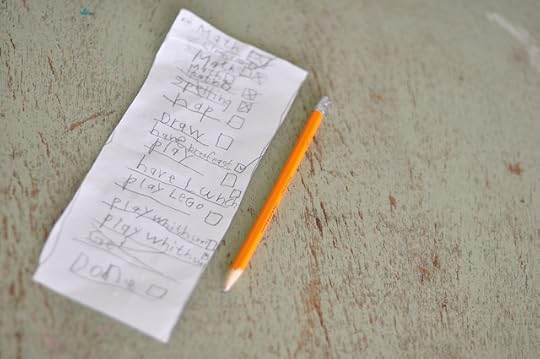 Math
Math
Math
Spelling
nap
Draw
have brecfeast
play
have Lunch
play LEGO
play whith
play whith
Get
DoNe